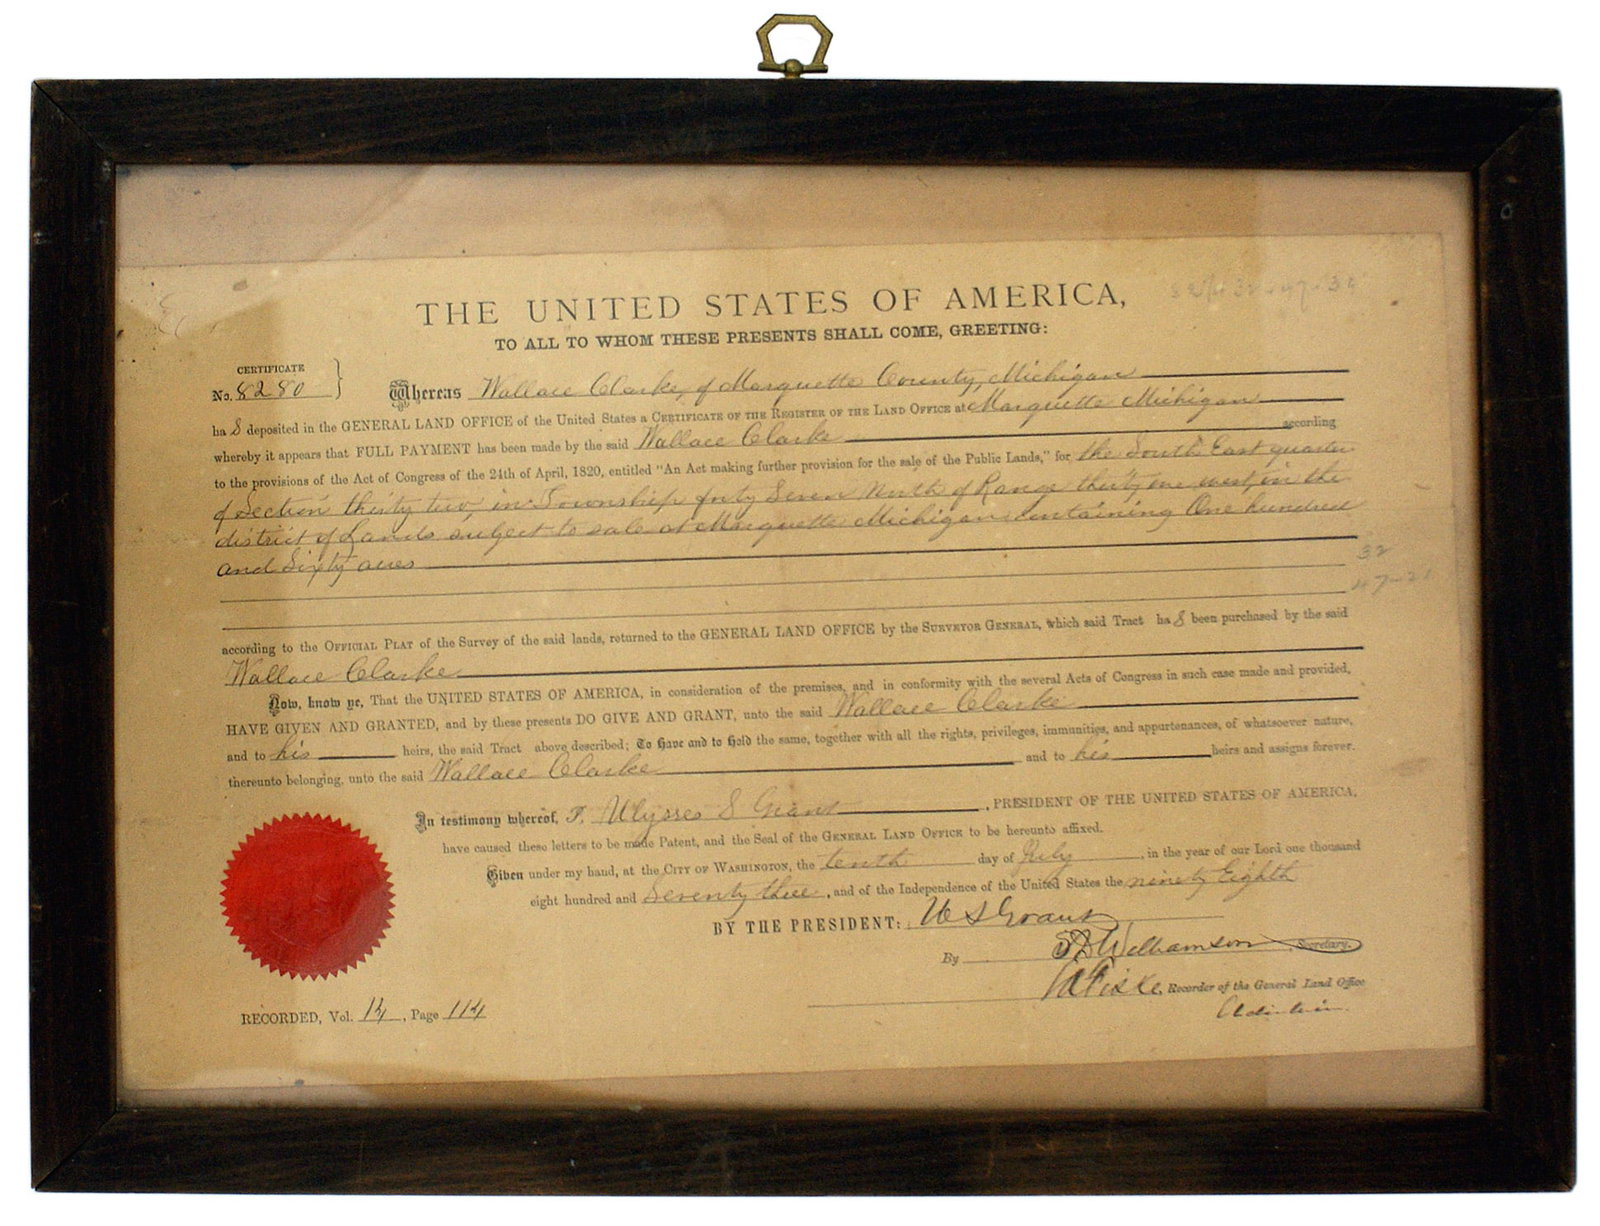 THE UNITED STATES OF AMERICA,
TO ALL TO WHOM THESE PRESENTS SHALL COME, GREETING:
CERTIFICATE
No. 8280
Whereas Wallace Clarke, of Marquette County, Michigan
ha s deposited in the GENERAL LAND OFFICE of the United States a CERTIFICATE OF THE REGISTER OF THE LAND OFFICE at Marquette Michigan
whereby it appears that FULL PAYMENT has been made by the said Wallace Clarke according
to the provisions of the Act of Congress of the 24th of April, 1820, entitled "An Act making further provision for the sale of the Public Lands," for the South East quarter
of Section thirty two, in Township forty Seven North of Range thirty one west, in the
district of Lands subject to sale at Marquette Michigan containing One hundred
and Sixty acres
32
according to the OFFICIAL PLAT of the Survey of the said lands, returned to the GENERAL LAND OFFICE by the SURVEYOR GENERAL, which said Tract ha s been purchased by the said
Wallace Clarke
Now, know ye, That the UNITED STATES OF AMERICA, in consideration of the premises, and in conformity with the several Acts of Congress in such case made and provided,
HAVE GIVEN AND GRANTED, and by these presents DO GIVE AND GRANT, unto the said Wallace Clarke
and to his heirs, the said Tract above described; To Have and to Hold the same, together with all the rights, privileges, immunities, and appurtenances, of whatsoever nature,
thereunto belonging, unto the said Wallace Clarke and to his heirs and assigns forever.
In testimony whereof, I, Ulysses S Grant, PRESIDENT OF THE UNITED STATES OF AMERICA,
have caused these letters to be made Patent, and the Seal of the GENERAL LAND OFFICE to be hereunto affixed.
Given under my hand, at the CITY OF WASHINGTON, the tenth day of July, in the year of our Lord one thousand
eight hundred and Seventy three, and of the Independence of the United States the ninety Eighth
BY THE PRESIDENT: U S Grant
By Williamson Secretary.
Fiske, Recorder of the General Land Office
Ad interim.
RECORDED, Vol. 14, Page 114